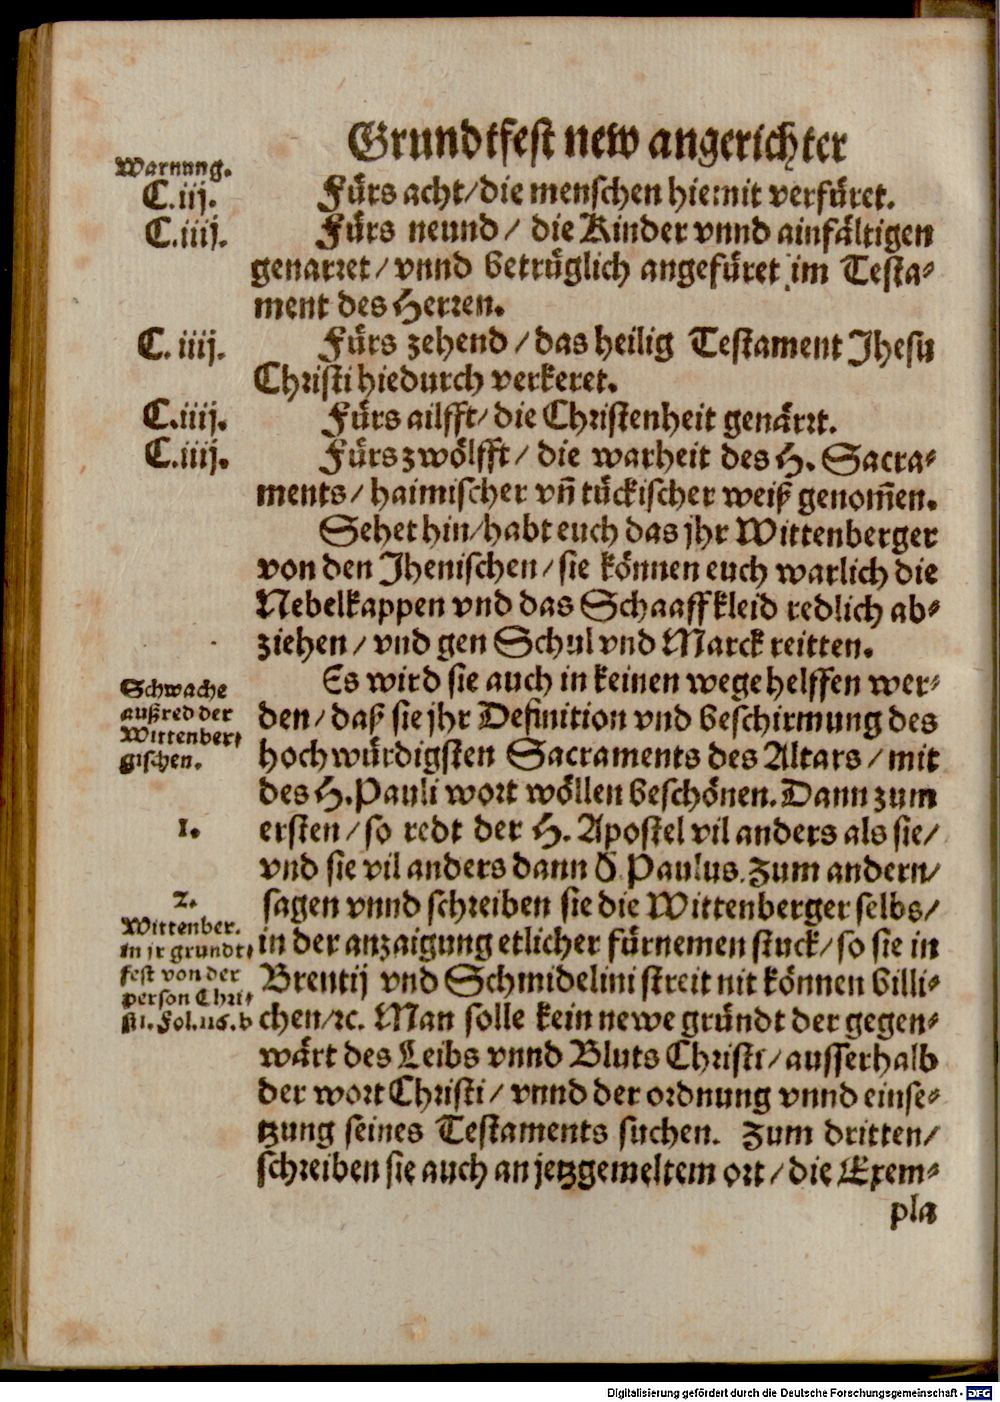 Grundtfest new angerichter
Warnung.
C.iij.
Fürs acht/die menschen hiemit verfüret.
C.iiij.
Fürs neund/ die Kinder vnnd ainfältigen
genarret/ vnnd betrüglich angefüret im Testa⸗
ment des Herren.
C.iiij.
Fürs zehend/das heilig Testament Jhesu
Christi hiedurch verkeret.
C.iiij.
Fürs ailfft/die Christenheit genärrt.
C.iiij.
Fürs zwölfft/ die warheit des H. Sacra⸗
ments/ haimischer vñ tückischer weiß genom̃en.
Sehet hin/habt euch das jhr Wittenberger
von den Jhenischen/sie können euch warlich die
Nebelkappen vnd das Schaaffkleid redlich ab⸗
ziehen/ vnd gen Schul vnd Marck reitten.
Schwache
außred der
Wittenber⸗
gischen.
Es wird sie auch in keinen wege helffen wer⸗
den/ daß sie jhr Definition vnd beschirmung des
hochwürdigsten Sacraments des Altars/ mit
des H. Pauli wort wöllen beschönen. Dann zum
1.
ersten/ so redt der H. Apostel vil anders als sie/
vnd sie vil anders dann S. Paulus. Zum andern/
2.
Wittenber.
in jr grundt⸗
fest von der
person Chri⸗
sti. Fol.116.b
sagen vnnd schreiben sie die Wittenberger selbs/
in der anzaigung etlicher fürnemen stuck/ so sie in
Brentij vnd Schmidelini streit nit können billi⸗
chen/ꝛc. Man solle kein newe gründt der gegen⸗
wärt des Leibs vnnd Bluts Christi/ausserhalb
der wort Christi/ vnnd der ordnung vnnd einse⸗
tzung seines Testaments suchen. Zum dritten/
schreiben sie auch an jetzgemeltem ort/ die Exem⸗
pla
Digitalisierung gefördert durch die Deutsche Forschungsgemeinschaft - DFG